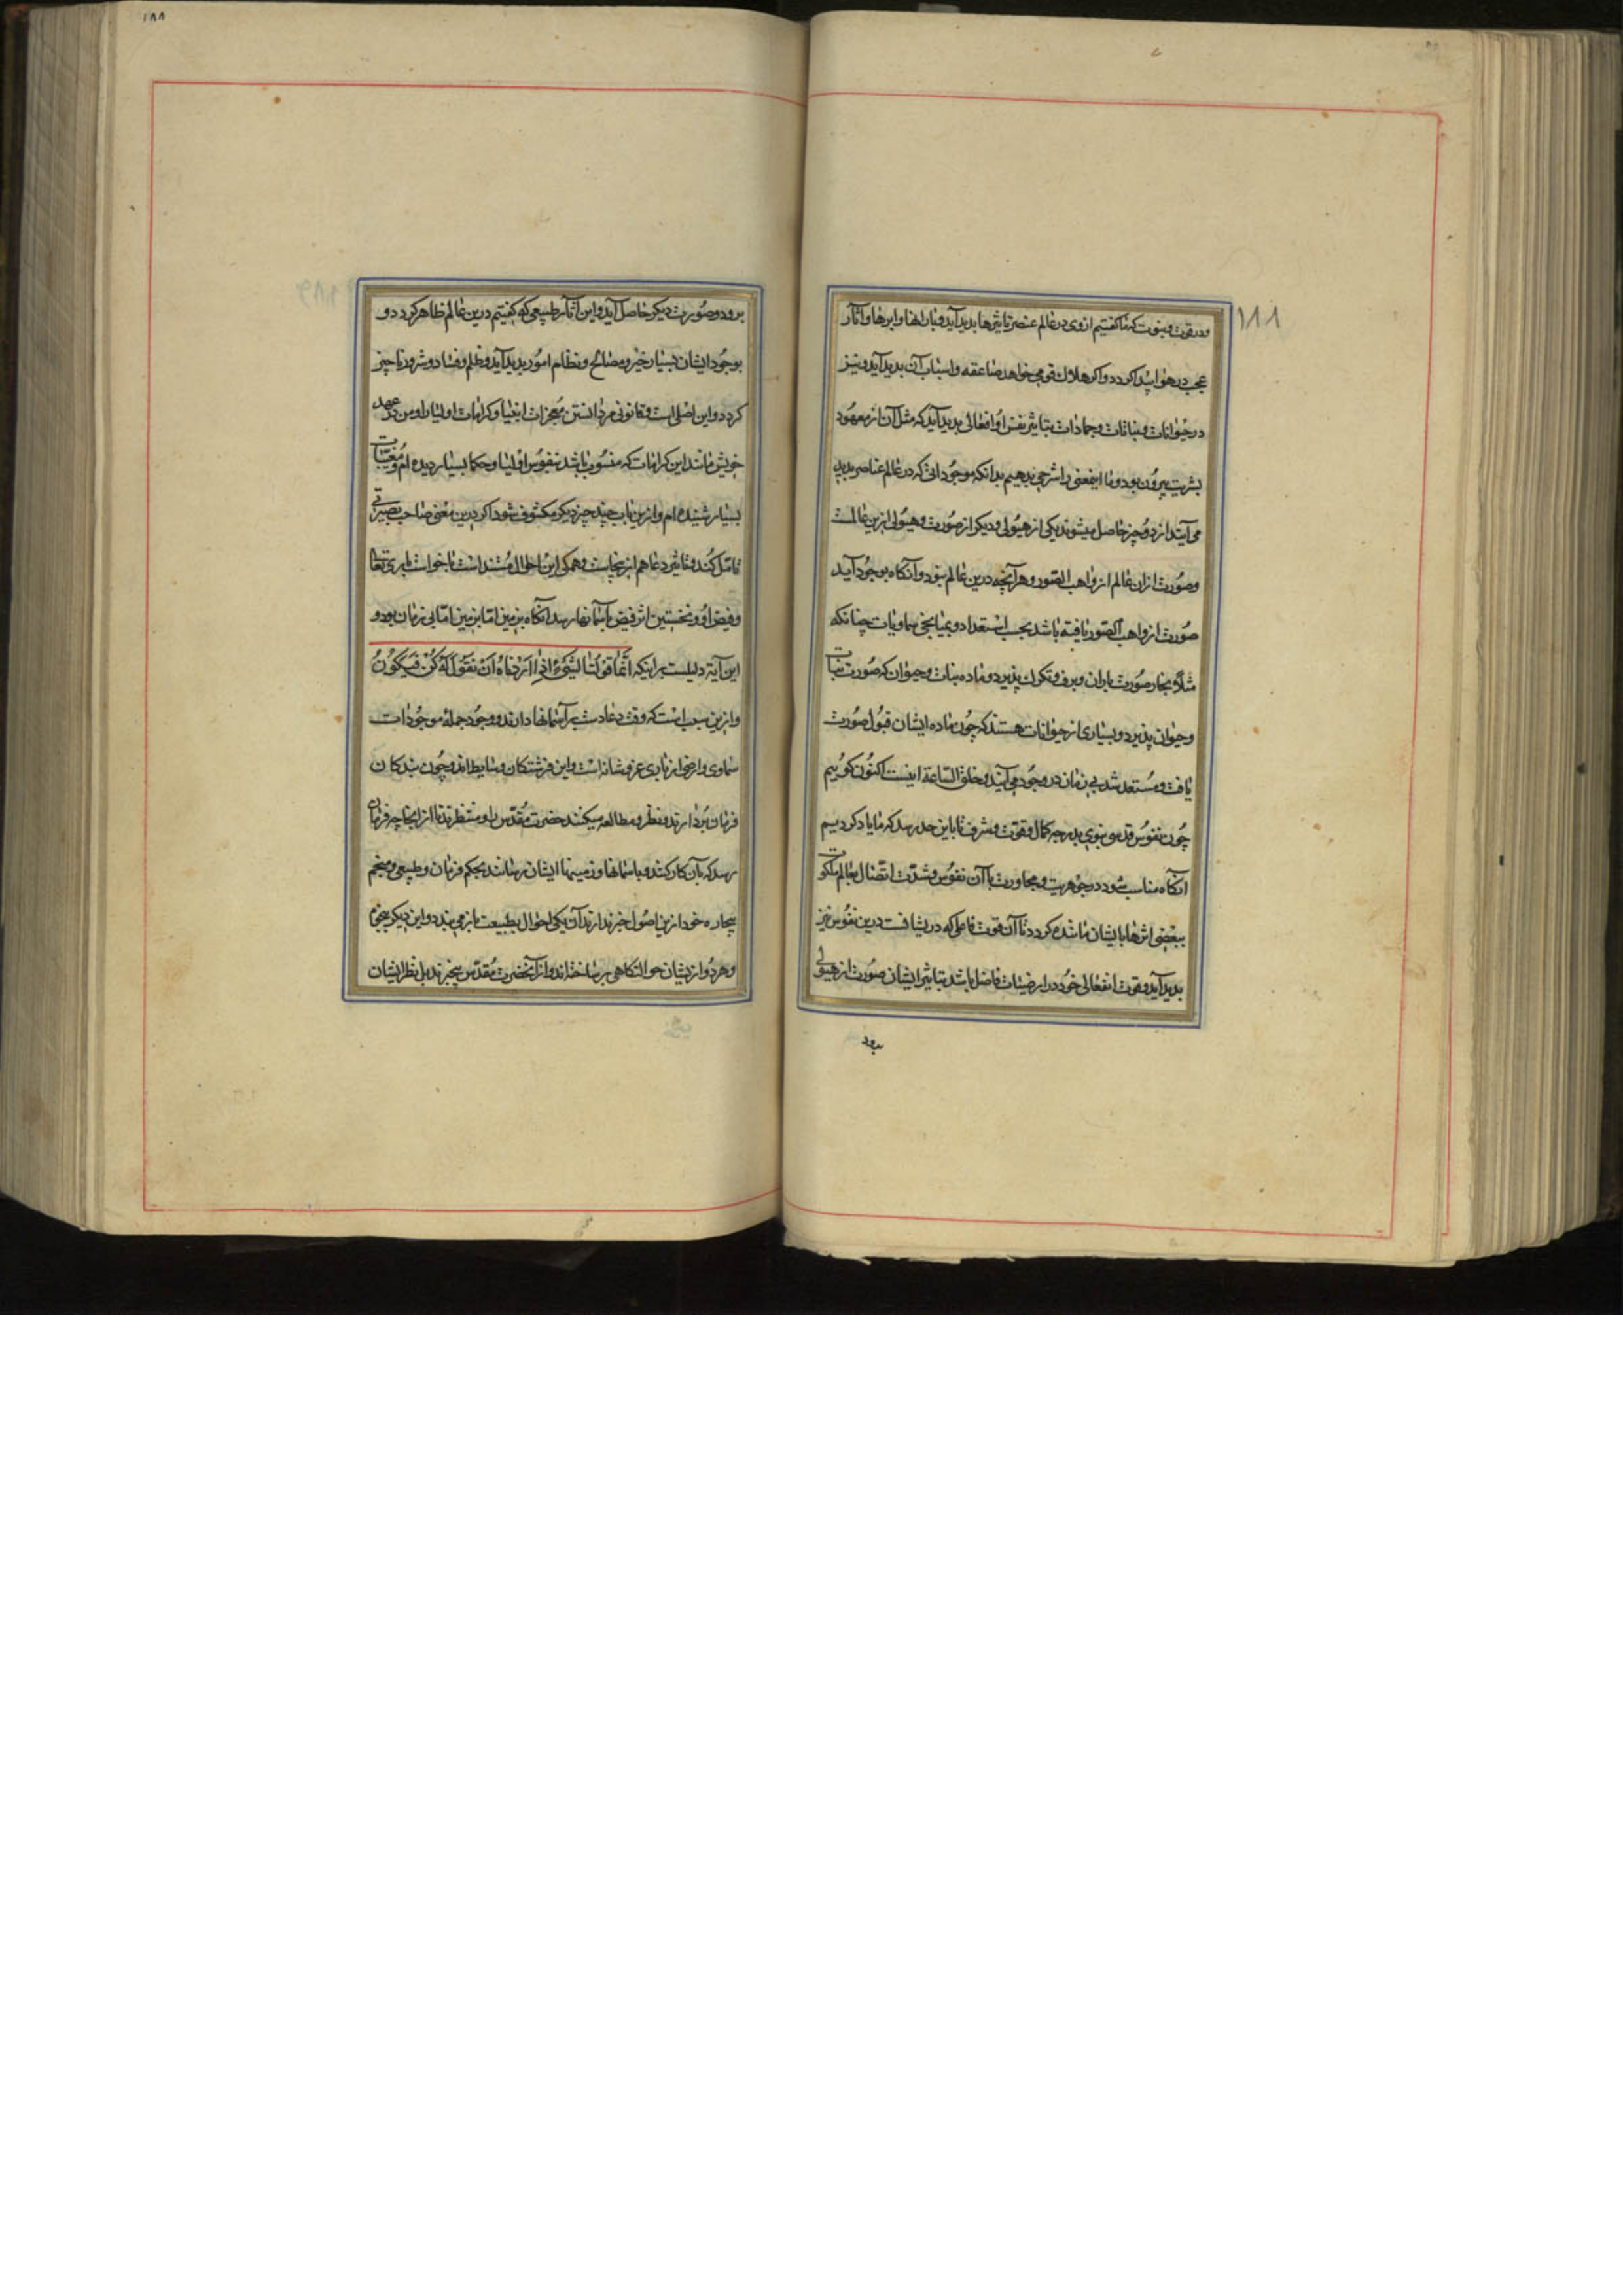 ۱۸۸
ودر قوت نبوت که ما گفتیم ازوی در عالم عنصر تاثیرها بدید آید و بارانها و ابرها و آثار
عجب در هوا پیدا کردد و اکر هلاک قومی خواهد صاعقه و اسباب آن بدید آید و نیز
در حیوانات و نباتات و جمادات بتاثیر نفس او افعالی بدید آید که مثل آن از معهود
بشریت بیرون بود و ما این معنی را شرحی بدهیم بدانکه موجوداتی که در عالم عناصر بدید
می آیند از دو چیز حاصل میشوند یکی از هیولی و دیکر از صورت و هیولی ازین عالمست
وصورت ازان عالم از واهب الصور و هر آنچه درین عالم بود و آنکاه بوجود آید
صورت از واهب الصور یافته باشد بحسب استعداد و بمیانجی سماویات چنانکه
مثلا بخار صورت باران و برف و تکرک پذیرد و ماده نبات و حیوان که صورت نبات
وحیوان پذیرد و بسیاری از حیوانات هستند که چون ماده ایشان قبول صورت
یافت و مستعد شد بی زمان در وجود می آیند و خلق الساعة اینست اکنون کوییم
چون نفوس قدسی نبوی بدرجه کمال و قوت و شرف تا باین حد رسد که ما یاد کردیم
آنکاه مناسب شود در جوهریت و مجاورت با آن نفوس و شدت اتصال بعالم ملکوت
ببعضی اثرها بایشان ماننده کردد تا آن قوت فاعلی که دریشانست درین نفوس نیز
بدید آید و قوت انفعالی خود در ارضیات حاصل باشد بتاثیر ایشان صورت از هیولی
برود
برود و صورت دیکر حاصل آید و این آثار طبیعی که کفتیم درین عالم ظاهر کردد و
بوجود ایشان بسیار خیر و مصالح و نظام امور بدید آید و ظلم و فساد و شرور ناچیز
کردد و این اصلی است و قانونی مر دانستن معجزات انبیا و کرامات اولیا را و من در عهد
خویش مانند این کرامات که منسوب باشد بنفوس اولیا و حکما بسیار دیده ام و مغیبات
بسیار شنیده ام و ازین باب چند چیز دیکر مکشوف شود اکر درین معنی صاحب بصیرتی
تامل کند و تاثیر دعا هم ازینجاست و همکی این احوال مستند است با خواست باری تعالی
وفیض او و نخستین اثر فیض بآسمانها رسد آنکاه بزمین اما بزمین اما بی زمان بود و
این آیة دلیلست بر اینکه انما قولنا لشیء اذا اردناه ان نقول له کن فیکون
وازین سبب است که وقت دعا دست بر آسمانها دارند و وجود جملهٔ موجودات
سماوی و ارضی از باری عز و شانه است و این فرشتکان وسایط اند و چون بندکان
فرمان بردارند و نظر و مطالعه میکنند حضرت مقدس را و منتظرند تا از آنجا چه فرمان
رسد که بآن کار کنند و باسمانها و زمینها ایشان رسانند بحکم فرمان و طبیعی و منجم
بیچاره خود ازین اصول خبر ندارند آن یکی احوال بطبیعت باز می بندد و این دیکر بنجوم
وهر دو ازیشان حوالتکاهی بر ساخته اند و از آن حضرت مقدس بیخبرند بل نظر ایشان